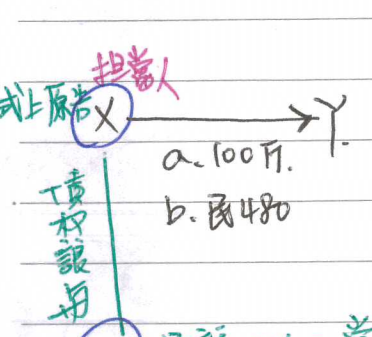 担當人
式上原告 X Y.
a. 100万.
b. 民480
債权讓与